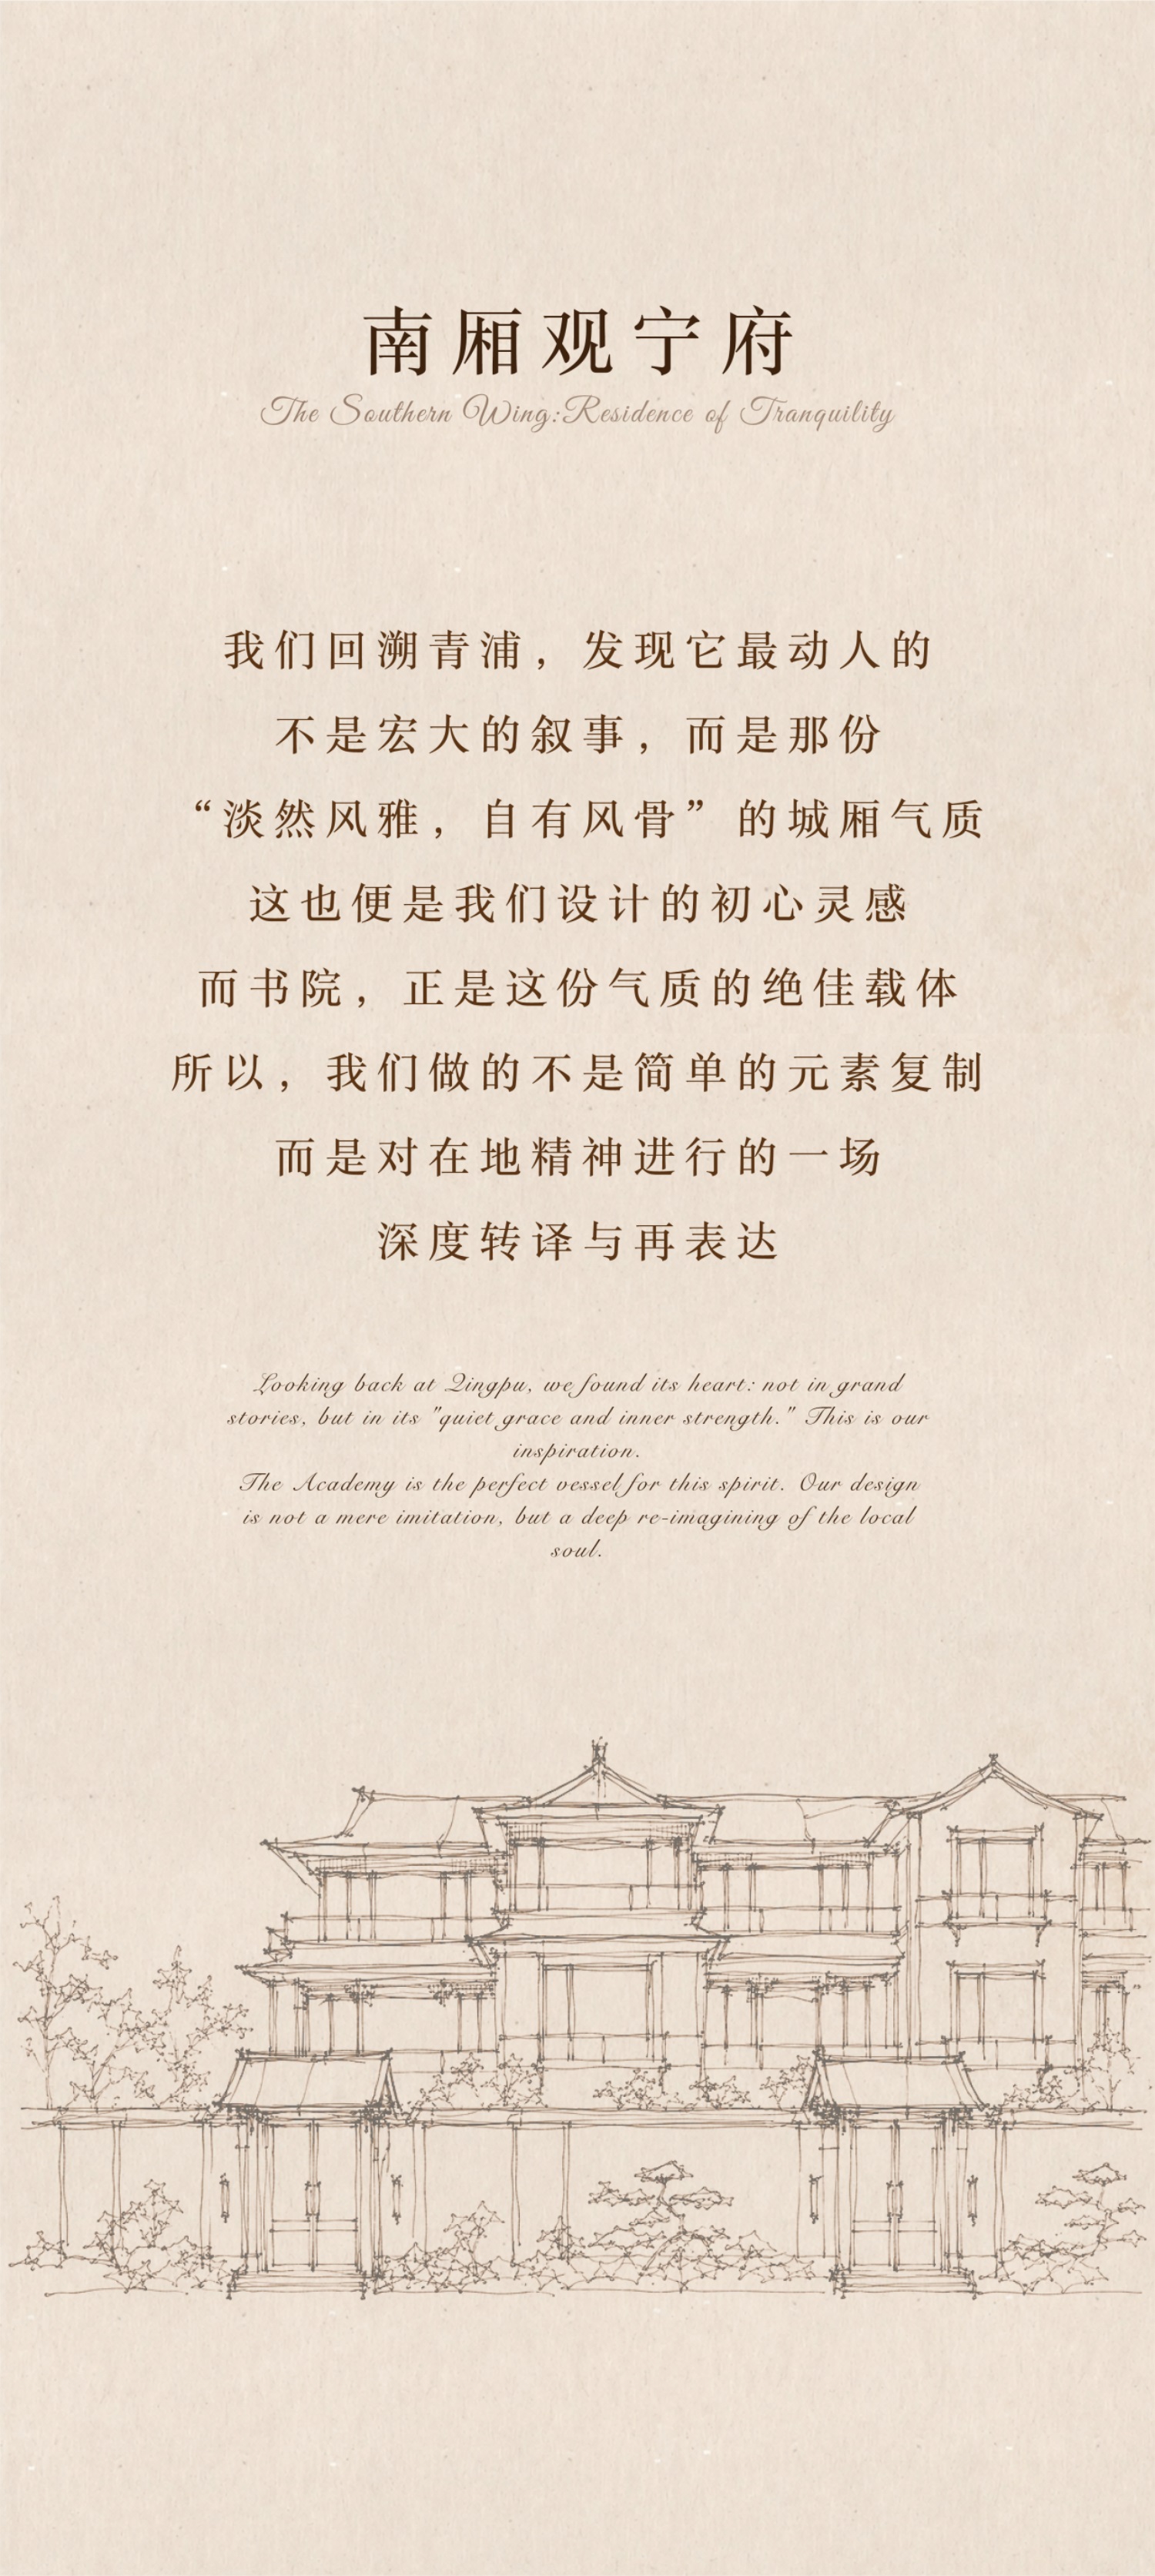 南厢观宁府
The Southern Wing:Residence of Tranquility
我们回溯青浦，发现它最动人的
不是宏大的叙事，而是那份
“淡然风雅，自有风骨”的城厢气质
这也便是我们设计的初心灵感
而书院，正是这份气质的绝佳载体
所以，我们做的不是简单的元素复制
而是对在地精神进行的一场
深度转译与再表达
Looking back at Qingpu, we found its heart: not in grand
stories, but in its "quiet grace and inner strength." This is our
inspiration.
The Academy is the perfect vessel for this spirit. Our design
is not a mere imitation, but a deep re-imagining of the local
soul.